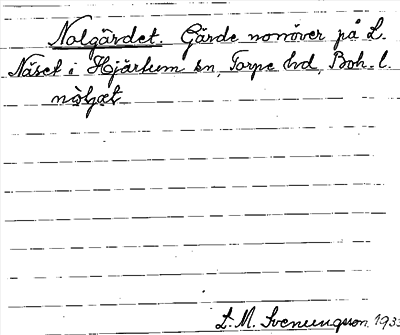 Nolgärdet. Gärde norröver på L.
Näset i Hjärtum sn, Torpe hd, Boh. l.
S. M. Svenungsson 193